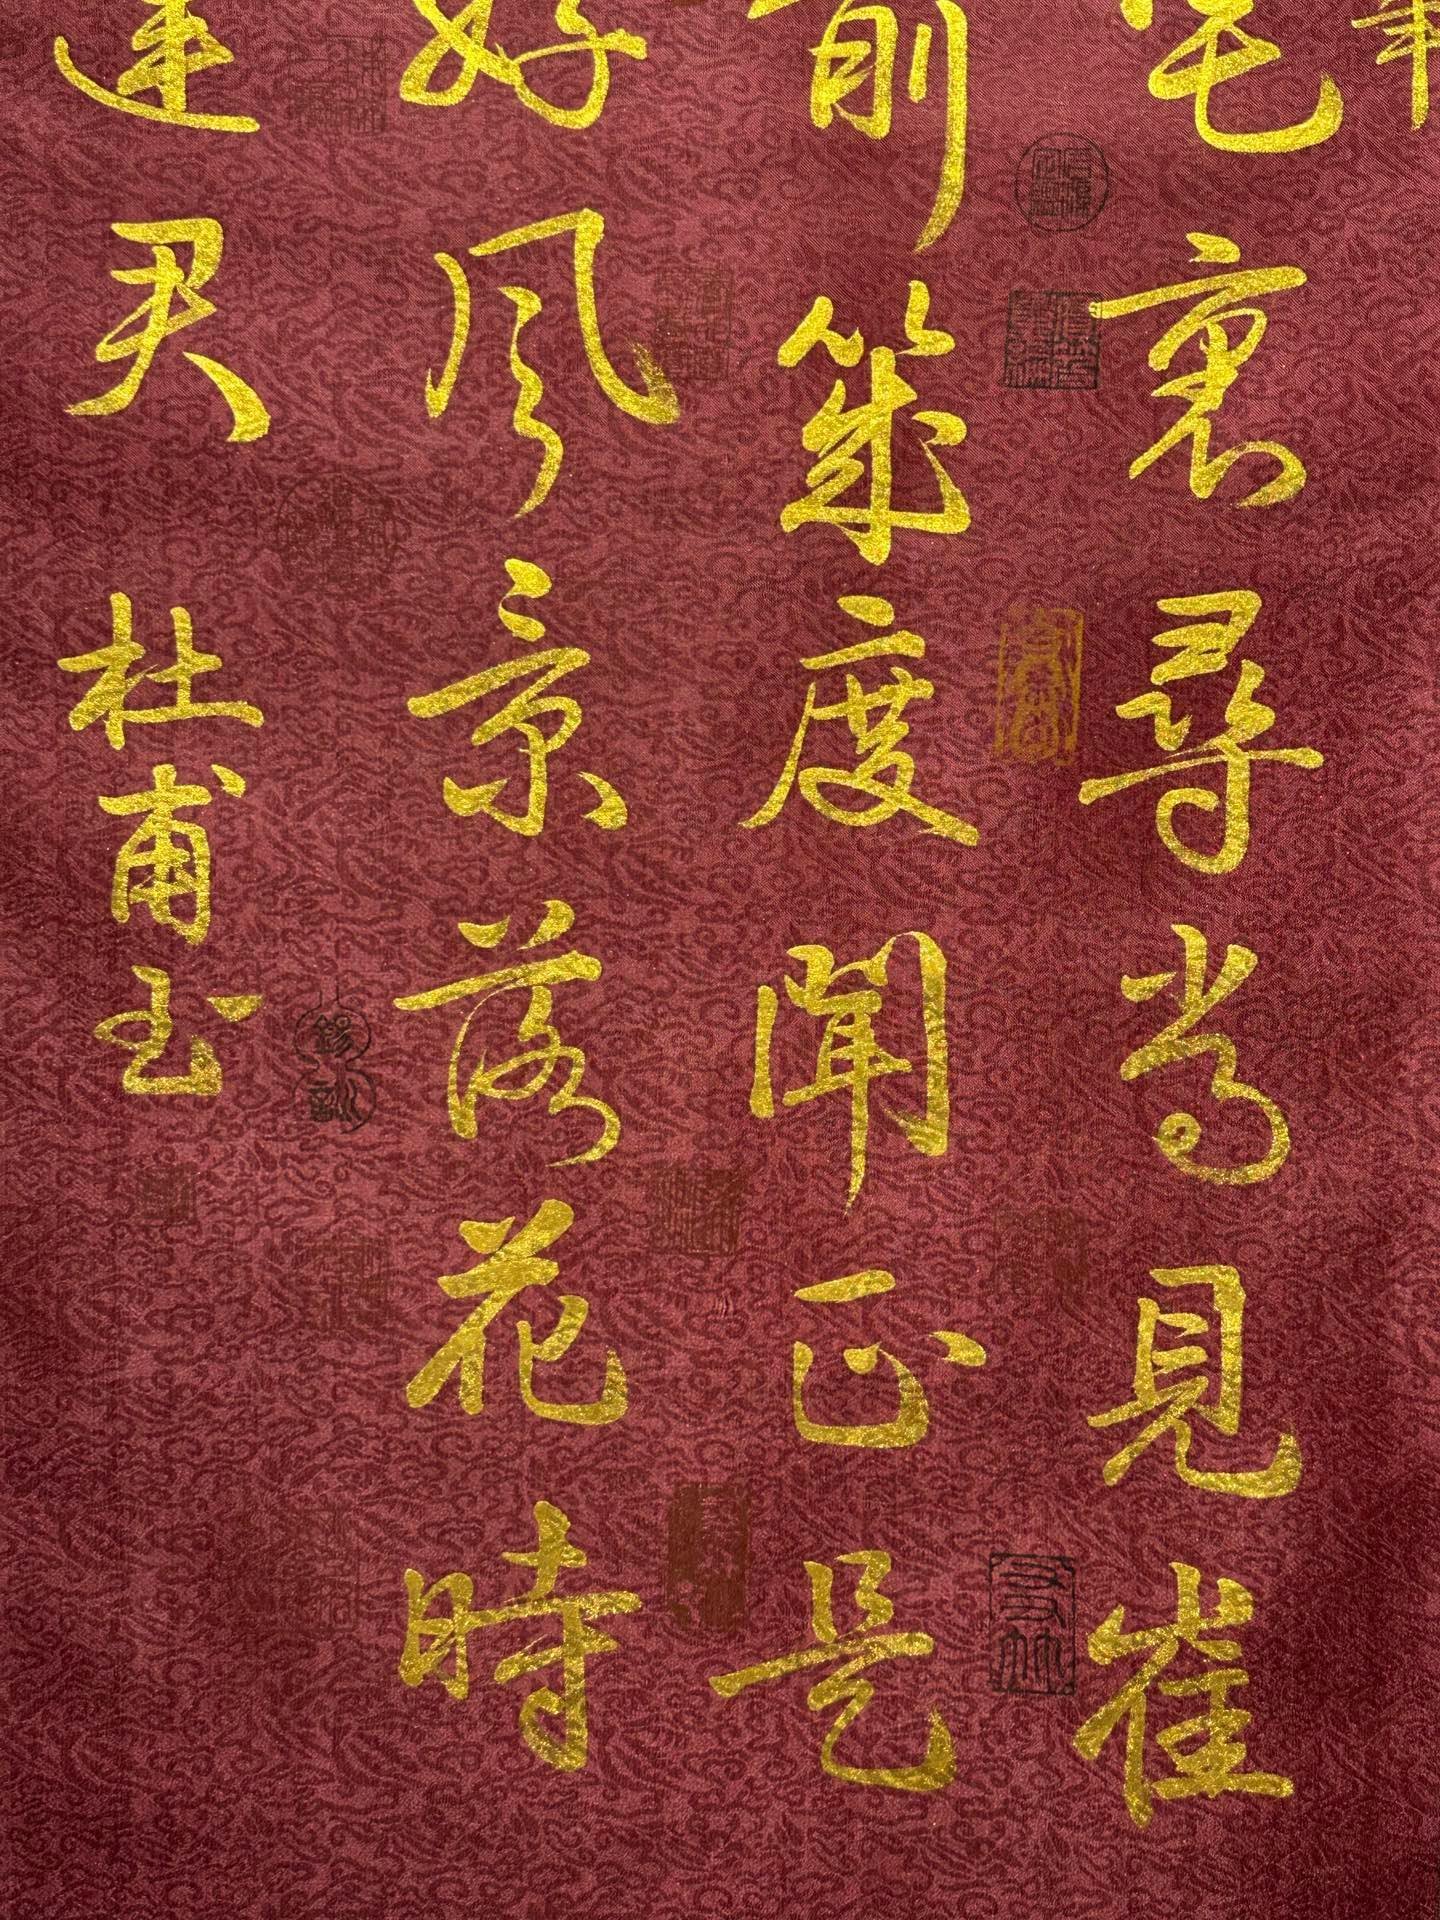 宅裏尋常見崔
前幾度聞正是
好風景落花時
逢君
杜甫